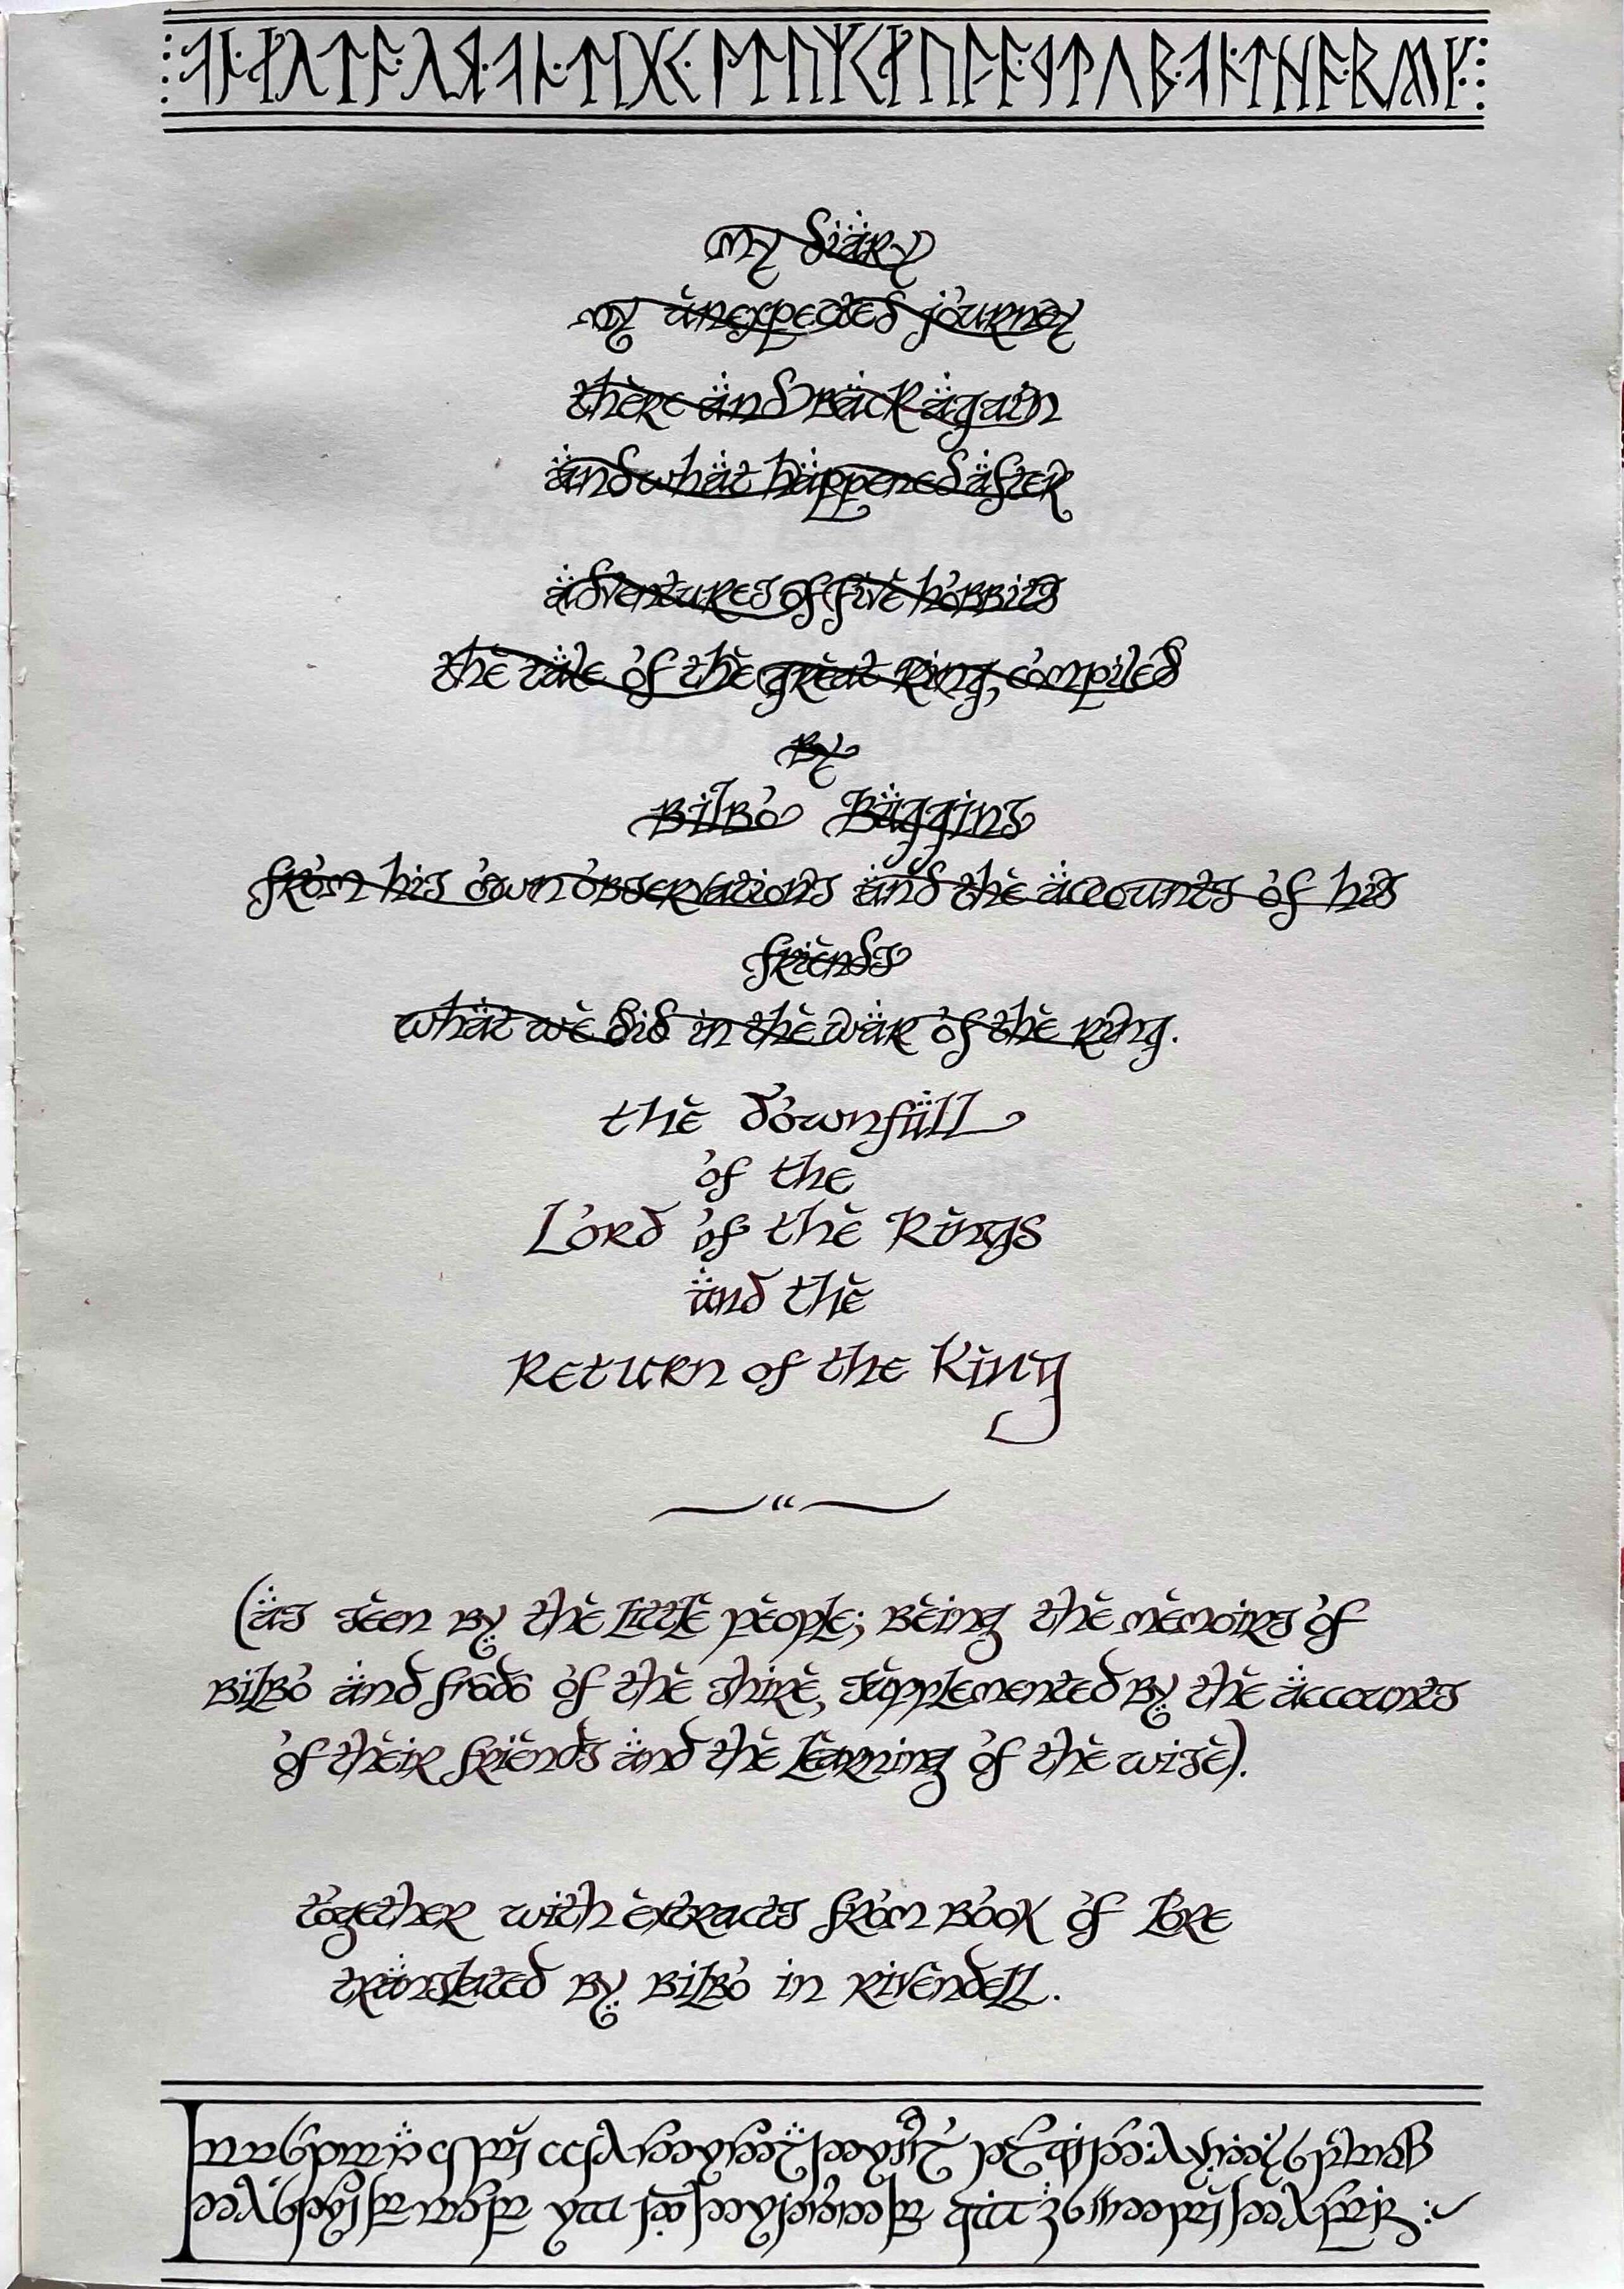 my diary
my unexpected journey
there and back again
and what happened after
adventures of five hobbits
the tale of the great Ring, compiled
by
Bilbo Baggins
from his own observations and the accounts of his
friends
what we did in the war of the ring.
the downfall
of the
Lord of the Rings
and the
Return of the King
(as seen by the little people; being the memoirs of
Bilbo and frodo of the shire, supplemented by the accounts
of their friends and the learning of the wise).
together with extracts from book of Lore
translated by Bilbo in Rivendell.